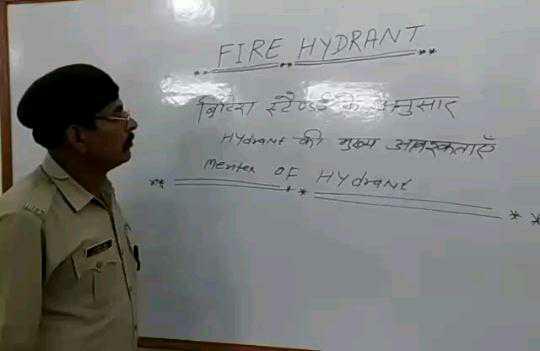 FIRE HYDRANT
ब्रिटिश स्टैण्डर्ड के अनुसार
Hydrant की मुख्य आवश्कताएँ
OF Hydrant